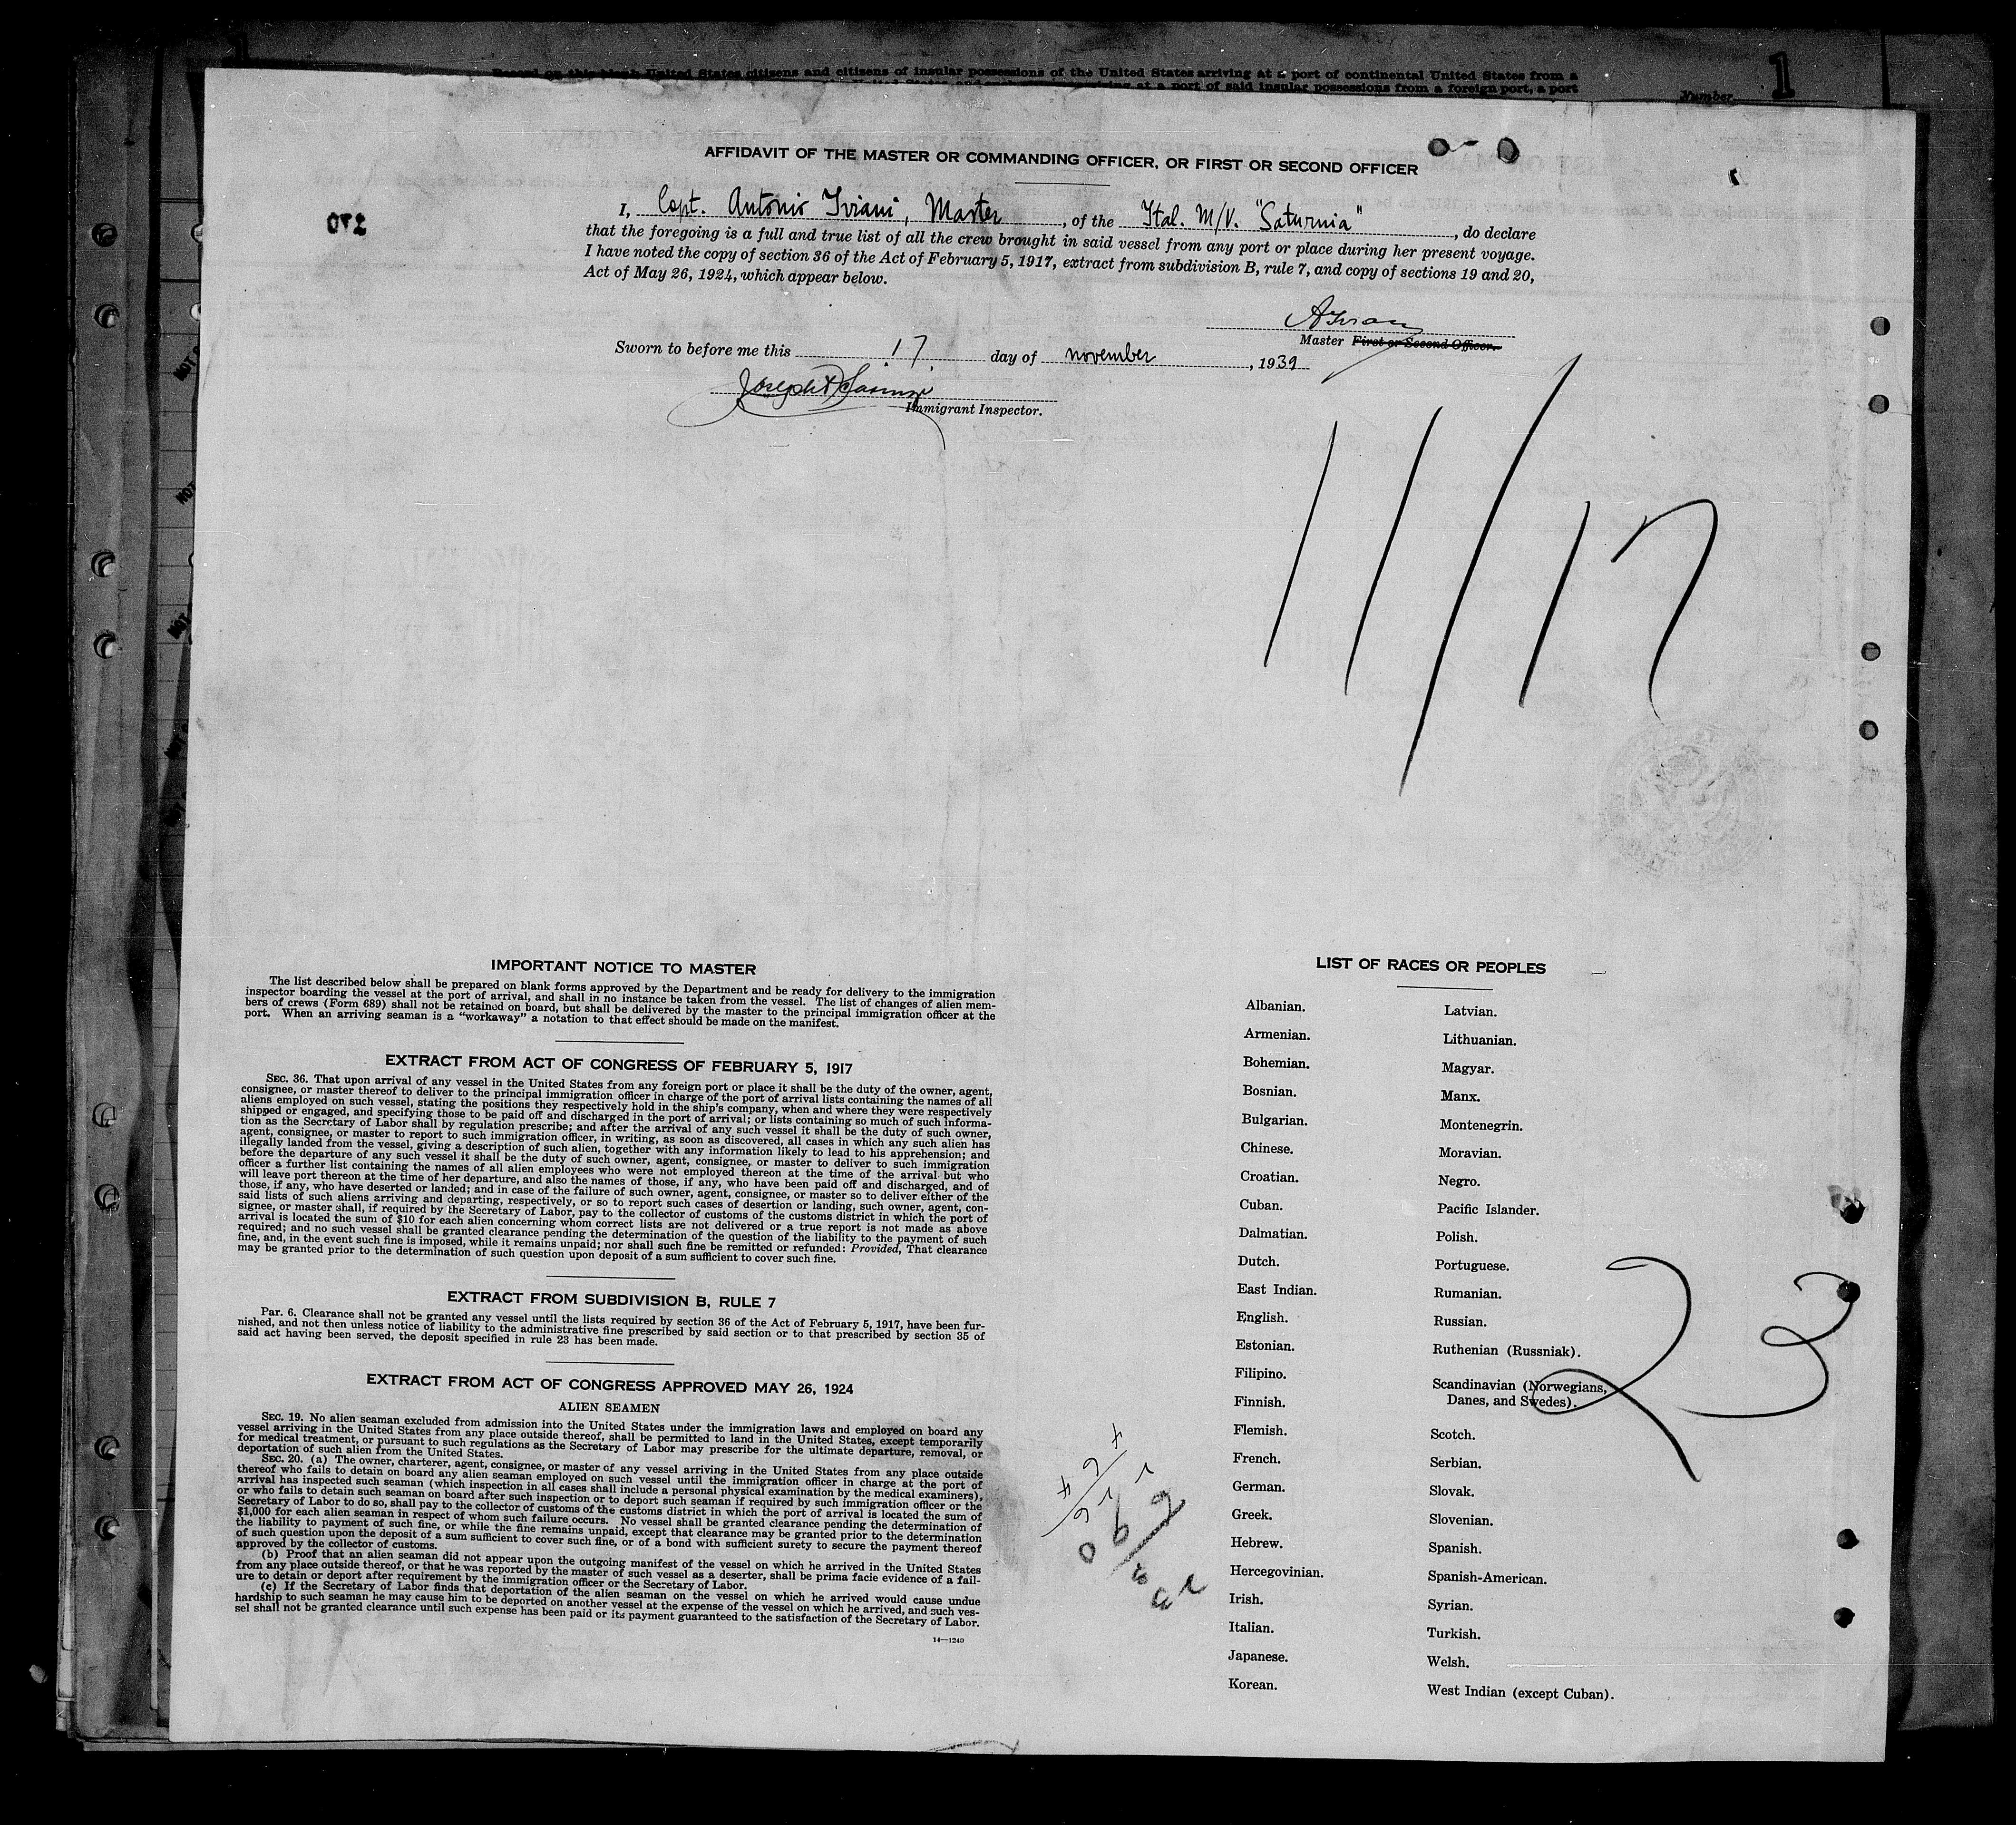 Record on this blank United States citizens and citizens of insular possessions of the United States arriving at a port of continental United States from a
at a port of said insular possessions from a foreign port, a port
Number 1
AFFIDAVIT OF THE MASTER OR COMMANDING OFFICER, OR FIRST OR SECOND OFFICER
I, Capt. Antonio Iviani, Master, of the Ital. M/V. "Saturnia", do declare
that the foregoing is a full and true list of all the crew brought in said vessel from any port or place during her present voyage.
I have noted the copy of section 36 of the Act of February 5, 1917, extract from subdivision B, rule 7, and copy of sections 19 and 20,
Act of May 26, 1924, which appear below.
Master First or Second Officer.
Sworn to before me this 17 day of november, 1939
Immigrant Inspector.
11/17
IMPORTANT NOTICE TO MASTER
The list described below shall be prepared on blank forms approved by the Department and be ready for delivery to the immigration
inspector boarding the vessel at the port of arrival, and shall in no instance be taken from the vessel. The list of changes of alien mem-
bers of crews (Form 689) shall not be retained on board, but shall be delivered by the master to the principal immigration officer at the
port. When an arriving seaman is a "workaway" a notation to that effect should be made on the manifest.
EXTRACT FROM ACT OF CONGRESS OF FEBRUARY 5, 1917
SEC. 36. That upon arrival of any vessel in the United States from any foreign port or place it shall be the duty of the owner, agent,
consignee, or master thereof to deliver to the principal immigration officer in charge of the port of arrival lists containing the names of all
aliens employed on such vessel, stating the positions they respectively hold in the ship's company, when and where they were respectively
shipped or engaged, and specifying those to be paid off and discharged in the port of arrival; or lists containing so much of such informa-
tion as the Secretary of Labor shall by regulation prescribe; and after the arrival of any such vessel it shall be the duty of such owner,
agent, consignee, or master to report to such immigration officer, in writing, as soon as discovered, all cases in which any such alien has
illegally landed from the vessel, giving a description of such alien, together with any information likely to lead to his apprehension; and
before the departure of any such vessel it shall be the duty of such owner, agent, consignee, or master to deliver to such immigration
officer a further list containing the names of all alien employees who were not employed thereon at the time of the arrival but who
will leave port thereon at the time of her departure, and also the names of those, if any, who have been paid off and discharged, and of
those, if any, who have deserted or landed; and in case of the failure of such owner, agent, consignee, or master so to deliver either of the
said lists of such aliens arriving and departing, respectively, or so to report such cases of desertion or landing, such owner, agent, con-
signee, or master shall, if required by the Secretary of Labor, pay to the collector of customs of the customs district in which the port of
arrival is located the sum of $10 for each alien concerning whom correct lists are not delivered or a true report is not made as above
required; and no such vessel shall be granted clearance pending the determination of the question of the liability to the payment of such
fine, and, in the event such fine is imposed, while it remains unpaid; nor shall such fine be remitted or refunded: Provided, That clearance
may be granted prior to the determination of such question upon deposit of a sum sufficient to cover such fine.
EXTRACT FROM SUBDIVISION B, RULE 7
Par. 6. Clearance shall not be granted any vessel until the lists required by section 36 of the Act of February 5, 1917, have been fur-
nished, and not then unless notice of liability to the administrative fine prescribed by said section or to that prescribed by section 35 of
said act having been served, the deposit specified in rule 23 has been made.
EXTRACT FROM ACT OF CONGRESS APPROVED MAY 26, 1924
ALIEN SEAMEN
SEC. 19. No alien seaman excluded from admission into the United States under the immigration laws and employed on board any
vessel arriving in the United States from any place outside thereof, shall be permitted to land in the United States, except temporarily
for medical treatment, or pursuant to such regulations as the Secretary of Labor may prescribe for the ultimate departure, removal, or
deportation of such alien from the United States.
SEC. 20. (a) The owner, charterer, agent, consignee, or master of any vessel arriving in the United States from any place outside
thereof who fails to detain on board any alien seaman employed on such vessel until the immigration officer in charge at the port of
arrival has inspected such seaman (which inspection in all cases shall include a personal physical examination by the medical examiners),
or who fails to detain such seaman on board after such inspection or to deport such seaman if required by such immigration officer or the
Secretary of Labor to do so, shall pay to the collector of customs of the customs district in which the port of arrival is located the sum of
$1,000 for each alien seaman in respect of whom such failure occurs. No vessel shall be granted clearance pending the determination of
the liability to payment of such fine, or while the fine remains unpaid, except that clearance may be granted prior to the determination
of such question upon the deposit of a sum sufficient to cover such fine, or of a bond with sufficient surety to secure the payment thereof
approved by the collector of customs.
(b) Proof that an alien seaman did not appear upon the outgoing manifest of the vessel on which he arrived in the United States
from any place outside thereof, or that he was reported by the master of such vessel as a deserter, shall be prima facie evidence of a fail-
ure to detain or deport after requirement by the immigration officer or the Secretary of Labor.
(c) If the Secretary of Labor finds that deportation of the alien seaman on the vessel on which he arrived would cause undue
hardship to such seaman he may cause him to be deported on another vessel at the expense of the vessel on which he arrived, and such ves-
sel shall not be granted clearance until such expense has been paid or its payment guaranteed to the satisfaction of the Secretary of Labor.
14—1240
LIST OF RACES OR PEOPLES
Albanian.
Armenian.
Bohemian.
Bosnian.
Bulgarian.
Chinese.
Croatian.
Cuban.
Dalmatian.
Dutch.
East Indian.
English.
Estonian.
Filipino.
Finnish.
Flemish.
French.
German.
Greek.
Hebrew.
Hercegovinian.
Irish.
Italian.
Japanese.
Korean.
Latvian.
Lithuanian.
Magyar.
Manx.
Montenegrin.
Moravian.
Negro.
Pacific Islander.
Polish.
Portuguese.
Rumanian.
Russian.
Ruthenian (Russniak).
Scandinavian (Norwegians,
Danes, and Swedes).
Scotch.
Serbian.
Slovak.
Slovenian.
Spanish.
Spanish-American.
Syrian.
Turkish.
Welsh.
West Indian (except Cuban).
23